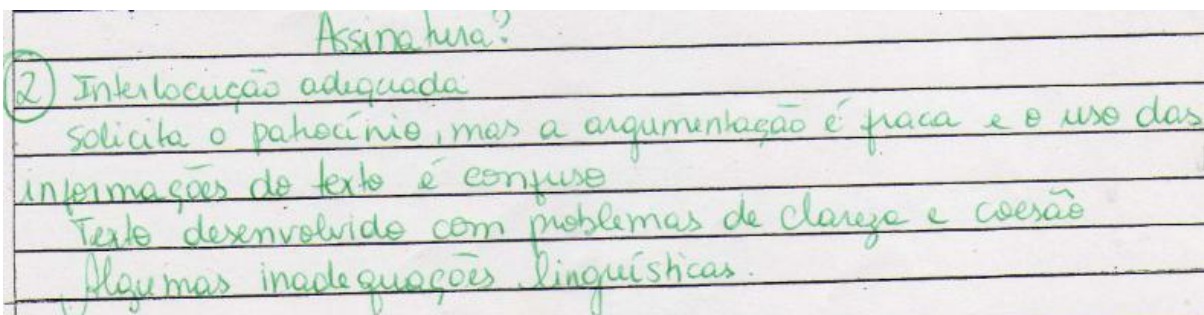 Assinatura?
2) Interlocução adequada
solicita o patrocínio, mas a argumentação é fraca e o uso das
informações do texto é confuso
Texto desenvolvido com problemas de clareza e coesão
Algumas inadequações linguísticas.